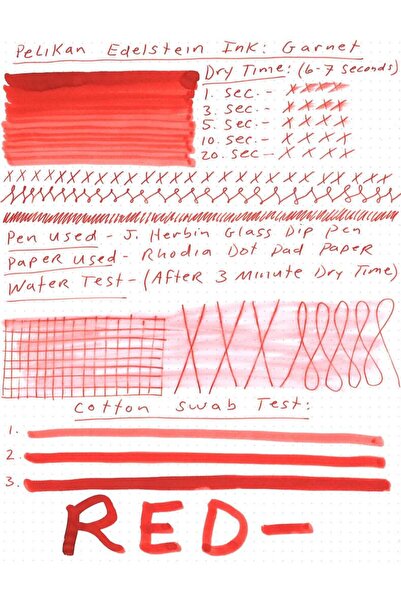 Pelikan Edelstein Ink: Garnet
Dry Time: (6-7 seconds)
1. sec. - x x x x
3. sec. - x x x x
5. sec - x x x x
10. sec - x x x x
20. sec - x x x x
Pen Used - J. Herbin Glass Dip Pen
Paper Used - Rhodia Dot Pad Paper
Water Test - (After 3 Minute Dry Time)
Cotton Swab Test:
1.
2.
3.
RED-